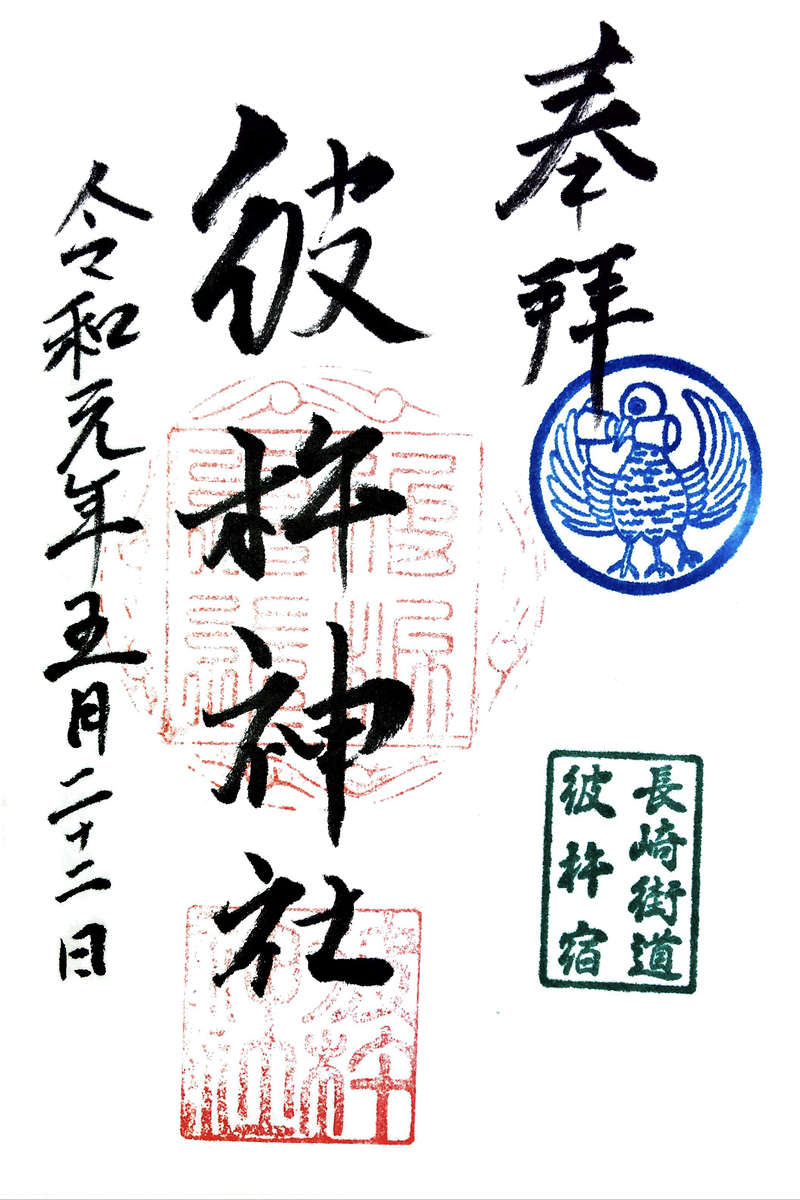 奉拝
長崎街道
彼杵宿
彼杵神社
令和元年五月二十二日